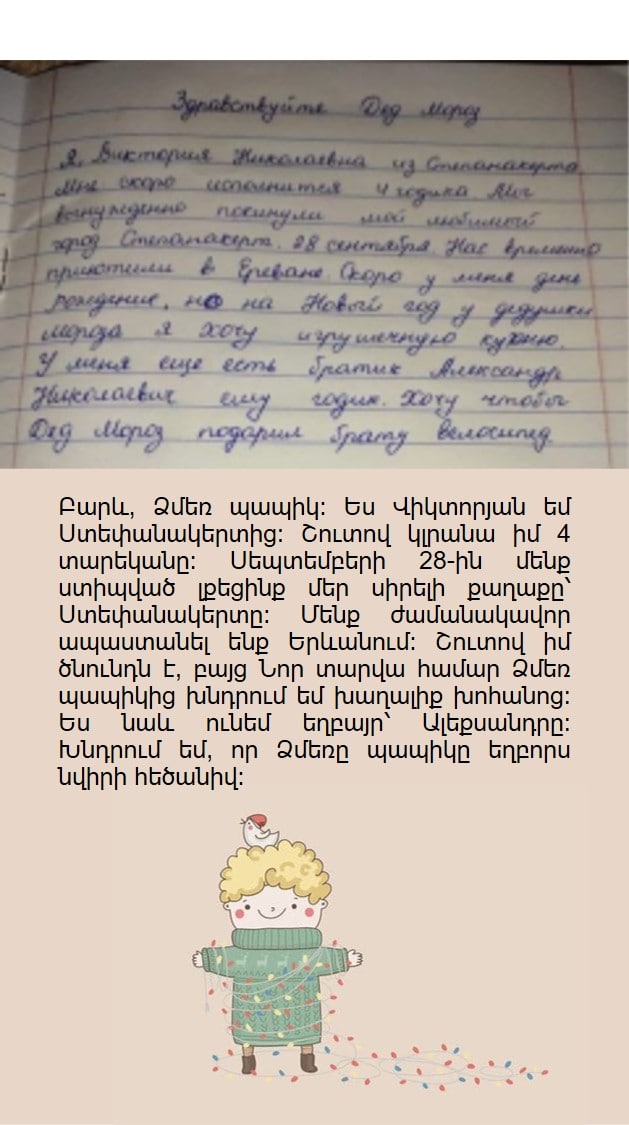 Здравствуйте Дед Мороз
Я, Виктория Николаевна из Степанакерта
Мне скоро исполнится 4 годика. Мы
вынужденно покинули мой любимый
город Степанакерт. 28 сентября. Нас временно
приютили в Ереване. Скоро у меня день
рождение, но на Новый год у дедушки
мороза я хочу игрушечную кухню.
У меня еще есть братик Александр
Николаевич ему годик. Хочу чтобы
Дед Мороз подарил брату велосипед
Բարև, Ձմեռ պապիկ: Ես Վիկտորյան եմ
Ստեփանակերտից: Շուտով կլրանա իմ 4
տարեկանը: Սեպտեմբերի 28-ին մենք
ստիպված լքեցինք մեր սիրելի քաղաքը՝
Ստեփանակերտը: Մենք ժամանակավոր
ապաստանել ենք Երևանում: Շուտով իմ
ծնունդն է, բայց Նոր տարվա համար Ձմեռ
պապիկից խնդրում եմ խաղալիք խոհանոց:
Ես նաև ունեմ եղբայր՝ Ալեքսանդրը:
Խնդրում եմ, որ Ձմեռը պապիկը եղբորս
նվիրի հեծանիվ: